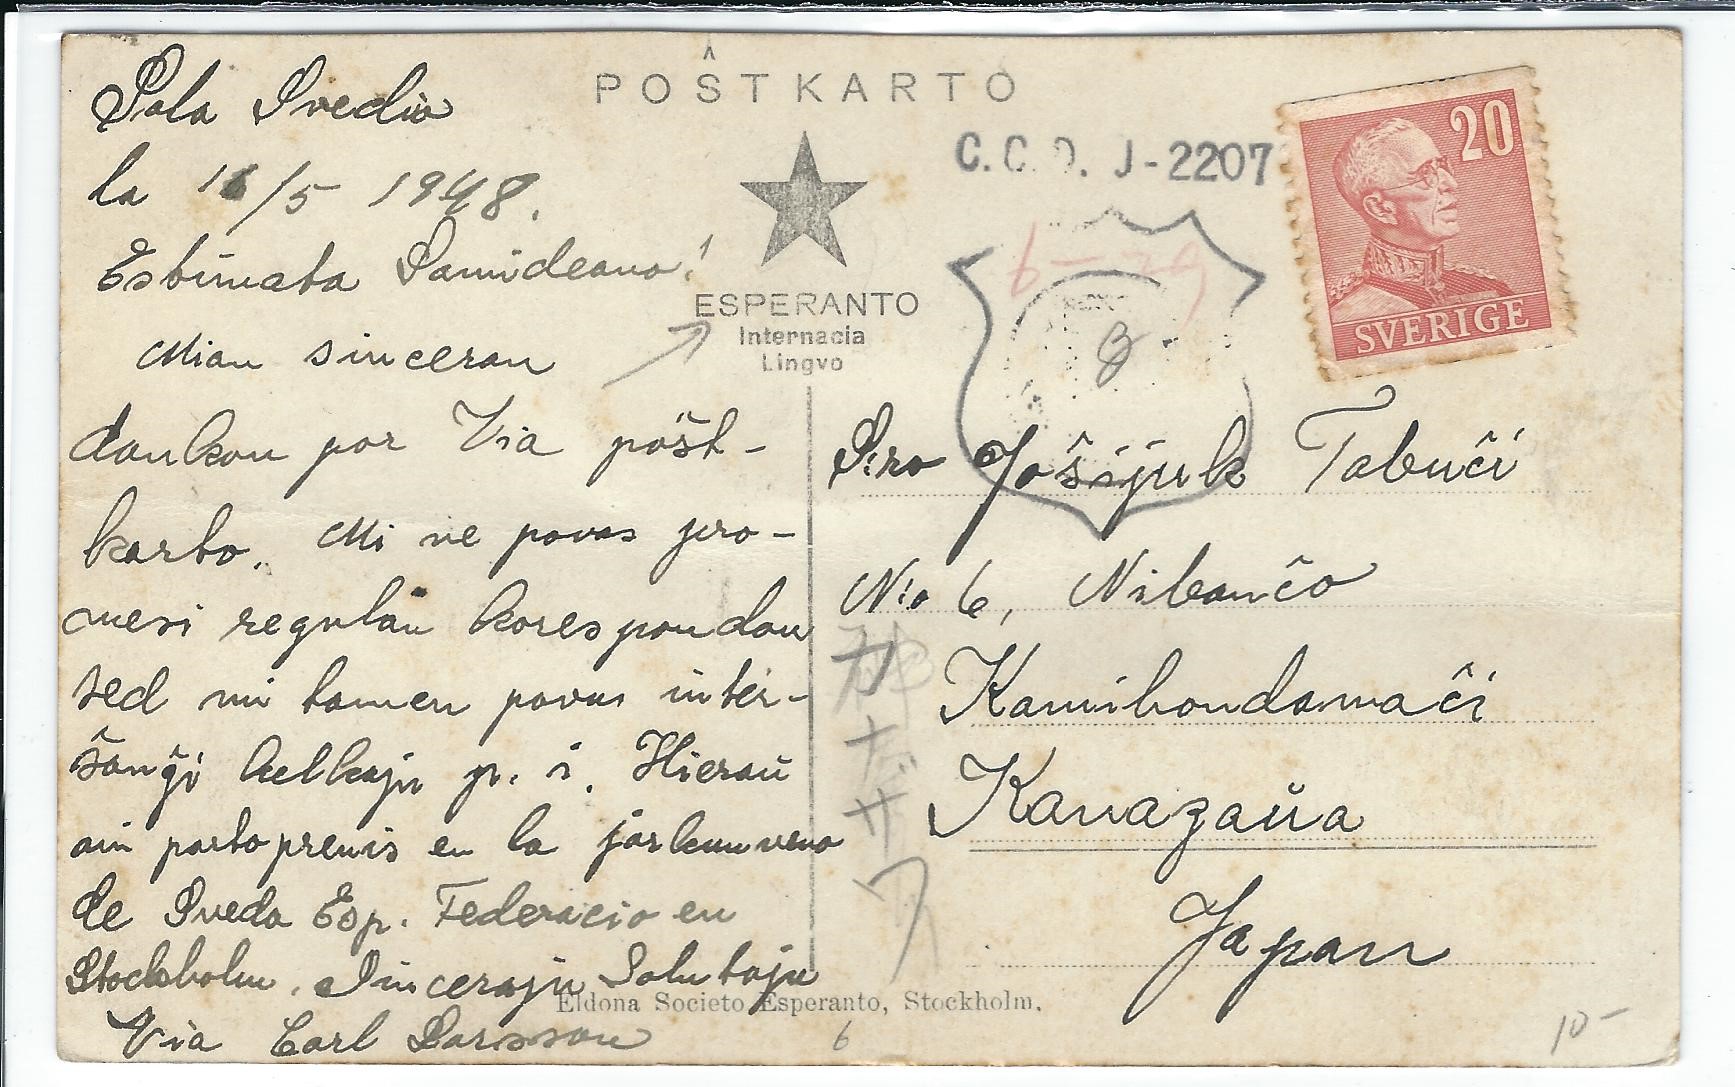 POŜTKARTO
ESPERANTO
Internacia
Lingvo
C.C.D. J-2207
20
SVERIGE
Sala Svedio
la 16/5 1948.
Estimata Samideano!
Mian sinceran
dankon por Via poŝt-
karto. Mi ne povas pro-
mesi regulan korespondon
sed mi tamen povas inter-
ŝanĝi kelkajn p. i. Hieraŭ
mi partoprenis en la jarkunveno
de Sveda Esp. Federacio en
Stockholm. Sincerajn Salutojn
Via Carl Larsson
S:ro Joŝijuk Tabuĉi
N:o 6, Nibanĉo
Kamihondamaĉi
Kanazaŭa
Japan
カナザワ
Eldona Societo Esperanto, Stockholm.
6
10-